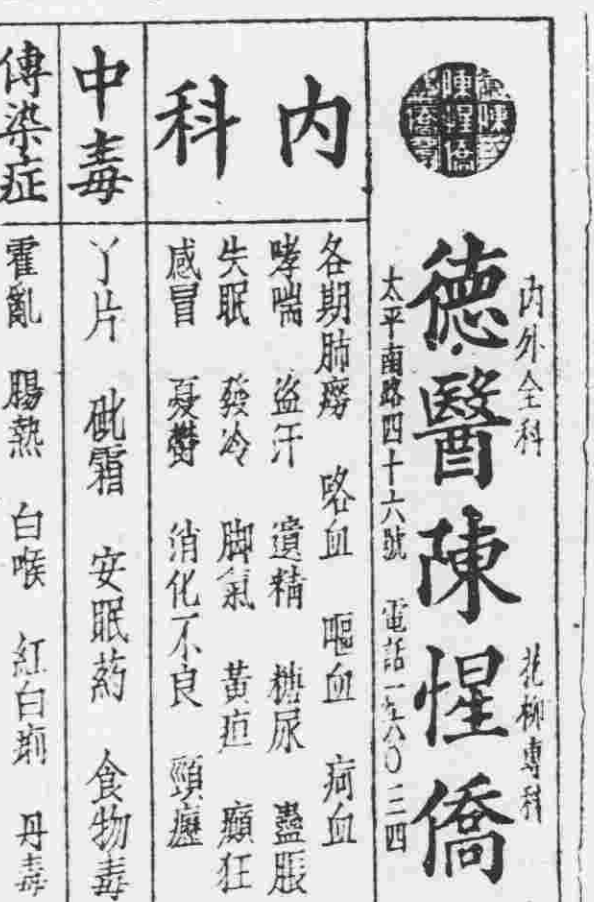 陳惺僑
內外全科
花柳專科
德醫陳惺僑
太平南路四十六號 電話一六〇三四
內科
各期肺癆 咯血 嘔血 疴血
哮喘 盜汗 遺精 糖尿 蠱脹
失眠 發冷 脚氣 黃疸 癲狂
感冒 憂鬱 消化不良 頸癧
中毒
丫片 砒霜 安眠葯 食物毒
傳染症
霍亂 腸熱 白喉 紅白痢 丹毒